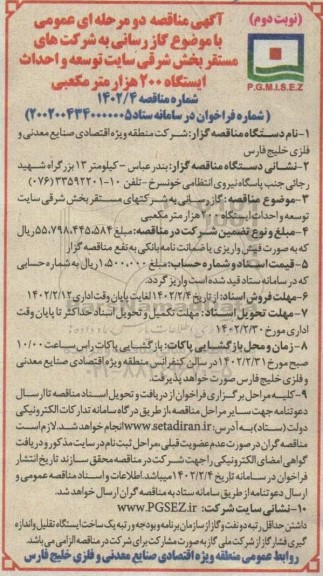 (نوبت دوم)
آگهی مناقصه دو مرحله ای عمومی
با موضوع گاز رسانی به شرکت های
مستقر بخش شرقی سایت توسعه و احداث
ایستگاه ۲۰۰ هزار متر مکعبی
P.G.M.I.S.E.Z
شماره مناقصه ۱۴۰۲/۴
(شماره فراخوان در سامانه ستاد ۲۰۰۲۰۰۴۳۴۰۰۰۰۰۵)
۱-نام دستگاه مناقصه گزار: شرکت منطقه ویژه اقتصادی صنایع معدنی و
فلزی خلیج فارس
۲-نشانی دستگاه مناقصه گزار: بندرعباس - کیلومتر ۱۳ بزرگراه شهید
رجائی جنب پاسگاه نیروی انتظامی خونسرخ - تلفن ۱۰-۳۳۵۹۲۲۰۱ (۰۷۶)
۳-موضوع مناقصه: گاز رسانی به شرکتهای مستقر بخش شرقی سایت
توسعه و احداث ایستگاه ۲۰۰ هزار متر مکعبی
۴-مبلغ و نوع تضمین شرکت در مناقصه: مبلغ ۵۵,۷۹۸,۴۴۵,۵۸۴ ریال
که به صورت فیش واریزی یا ضمانت نامه بانکی به نفع مناقصه گزار
۵-قیمت اسناد و شماره حساب: مبلغ ۱,۵۰۰,۰۰۰ ریال به شماره حسابی
که در سامانه ستاد قید شده است واریز گردد.
۶-مهلت فروش اسناد: از تاریخ ۱۴۰۲/۲/۴ لغایت پایان وقت اداری ۱۴۰۲/۲/۱۲
۷-مهلت تحویل اسناد: مهلت تکمیل و تحویل اسناد حداکثر تا پایان وقت
اداری مورخ ۱۴۰۲/۲/۳۰
۸-زمان و محل بازگشایی پاکات: بازگشایی پاکات راس ساعت ۱۰/۰۰
صبح مورخ ۱۴۰۲/۲/۳۱ در سالن کنفرانس منطقه ویژه اقتصادی صنایع معدنی
و فلزی خلیج فارس صورت خواهد پذیرفت
۹-کلیه مراحل برگزاری فراخوان از دریافت و تحویل اسناد مناقصه تا ارسال
دعوتنامه جهت سایر مراحل مناقصه، از طریق درگاه سامانه تدارکات الکترونیکی
دولت (ستاد) به آدرس: www.setadiran.ir انجام خواهد شد. لازم است
مناقصه گران در صورت عدم عضویت قبلی، مراحل ثبت نام در سایت مذکور و دریافت
گواهی امضای الکترونیکی را جهت شرکت در مناقصه محقق سازند تاریخ انتشار
فراخوان در سامانه تاریخ ۱۴۰۲/۲/۴ میباشد اطلاعات و اسناد مناقصه عمومی و
ارسال دعوتنامه از طریق سامانه ستاد به مناقصه گران ارسال خواهد شد.
۱۰-نشانی سایت شرکت: www.PGSEZ.ir
داشتن حداقل رتبه دو نفت و گاز از سازمان برنامه و بودجه و رتبه یک ساخت ایستگاه تقلیل و اندازه
گیری فشار گاز از شرکت ملی گاز به صورت مشارکت برای شرکت در مناقصه الزامی می باشد.
روابط عمومی منطقه ویژه اقتصادی صنایع معدنی و فلزی خلیج فارس